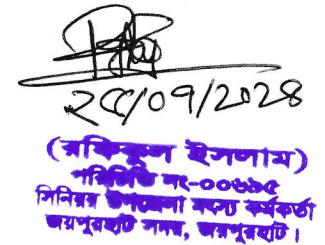 ২৫/০৭/২০২৪
(রফিকুল ইসলাম)
পরিচিতি নং-০০৬৯৫
সিনিয়র উপজেলা মৎস্য কর্মকর্তা
জয়পুরহাট সদর, জয়পুরহাট।